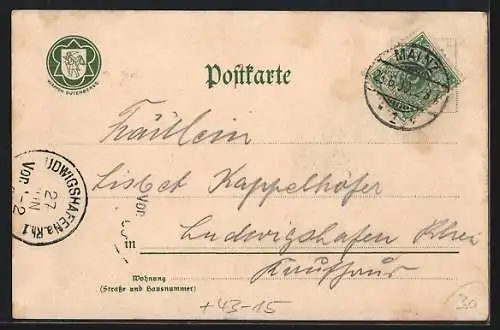 WAPPEN GUTENBERGS
Postkarte
MAINZ
Fräulein
Lisbet Kappelhöfer
Vor
in Ludwigshafen Rhein
LUDWIGSHAFEN a. Rh. 1
27 JUN
Vor. 1-2
Wohnung
(Straße und Hausnummer)
+43-15
30